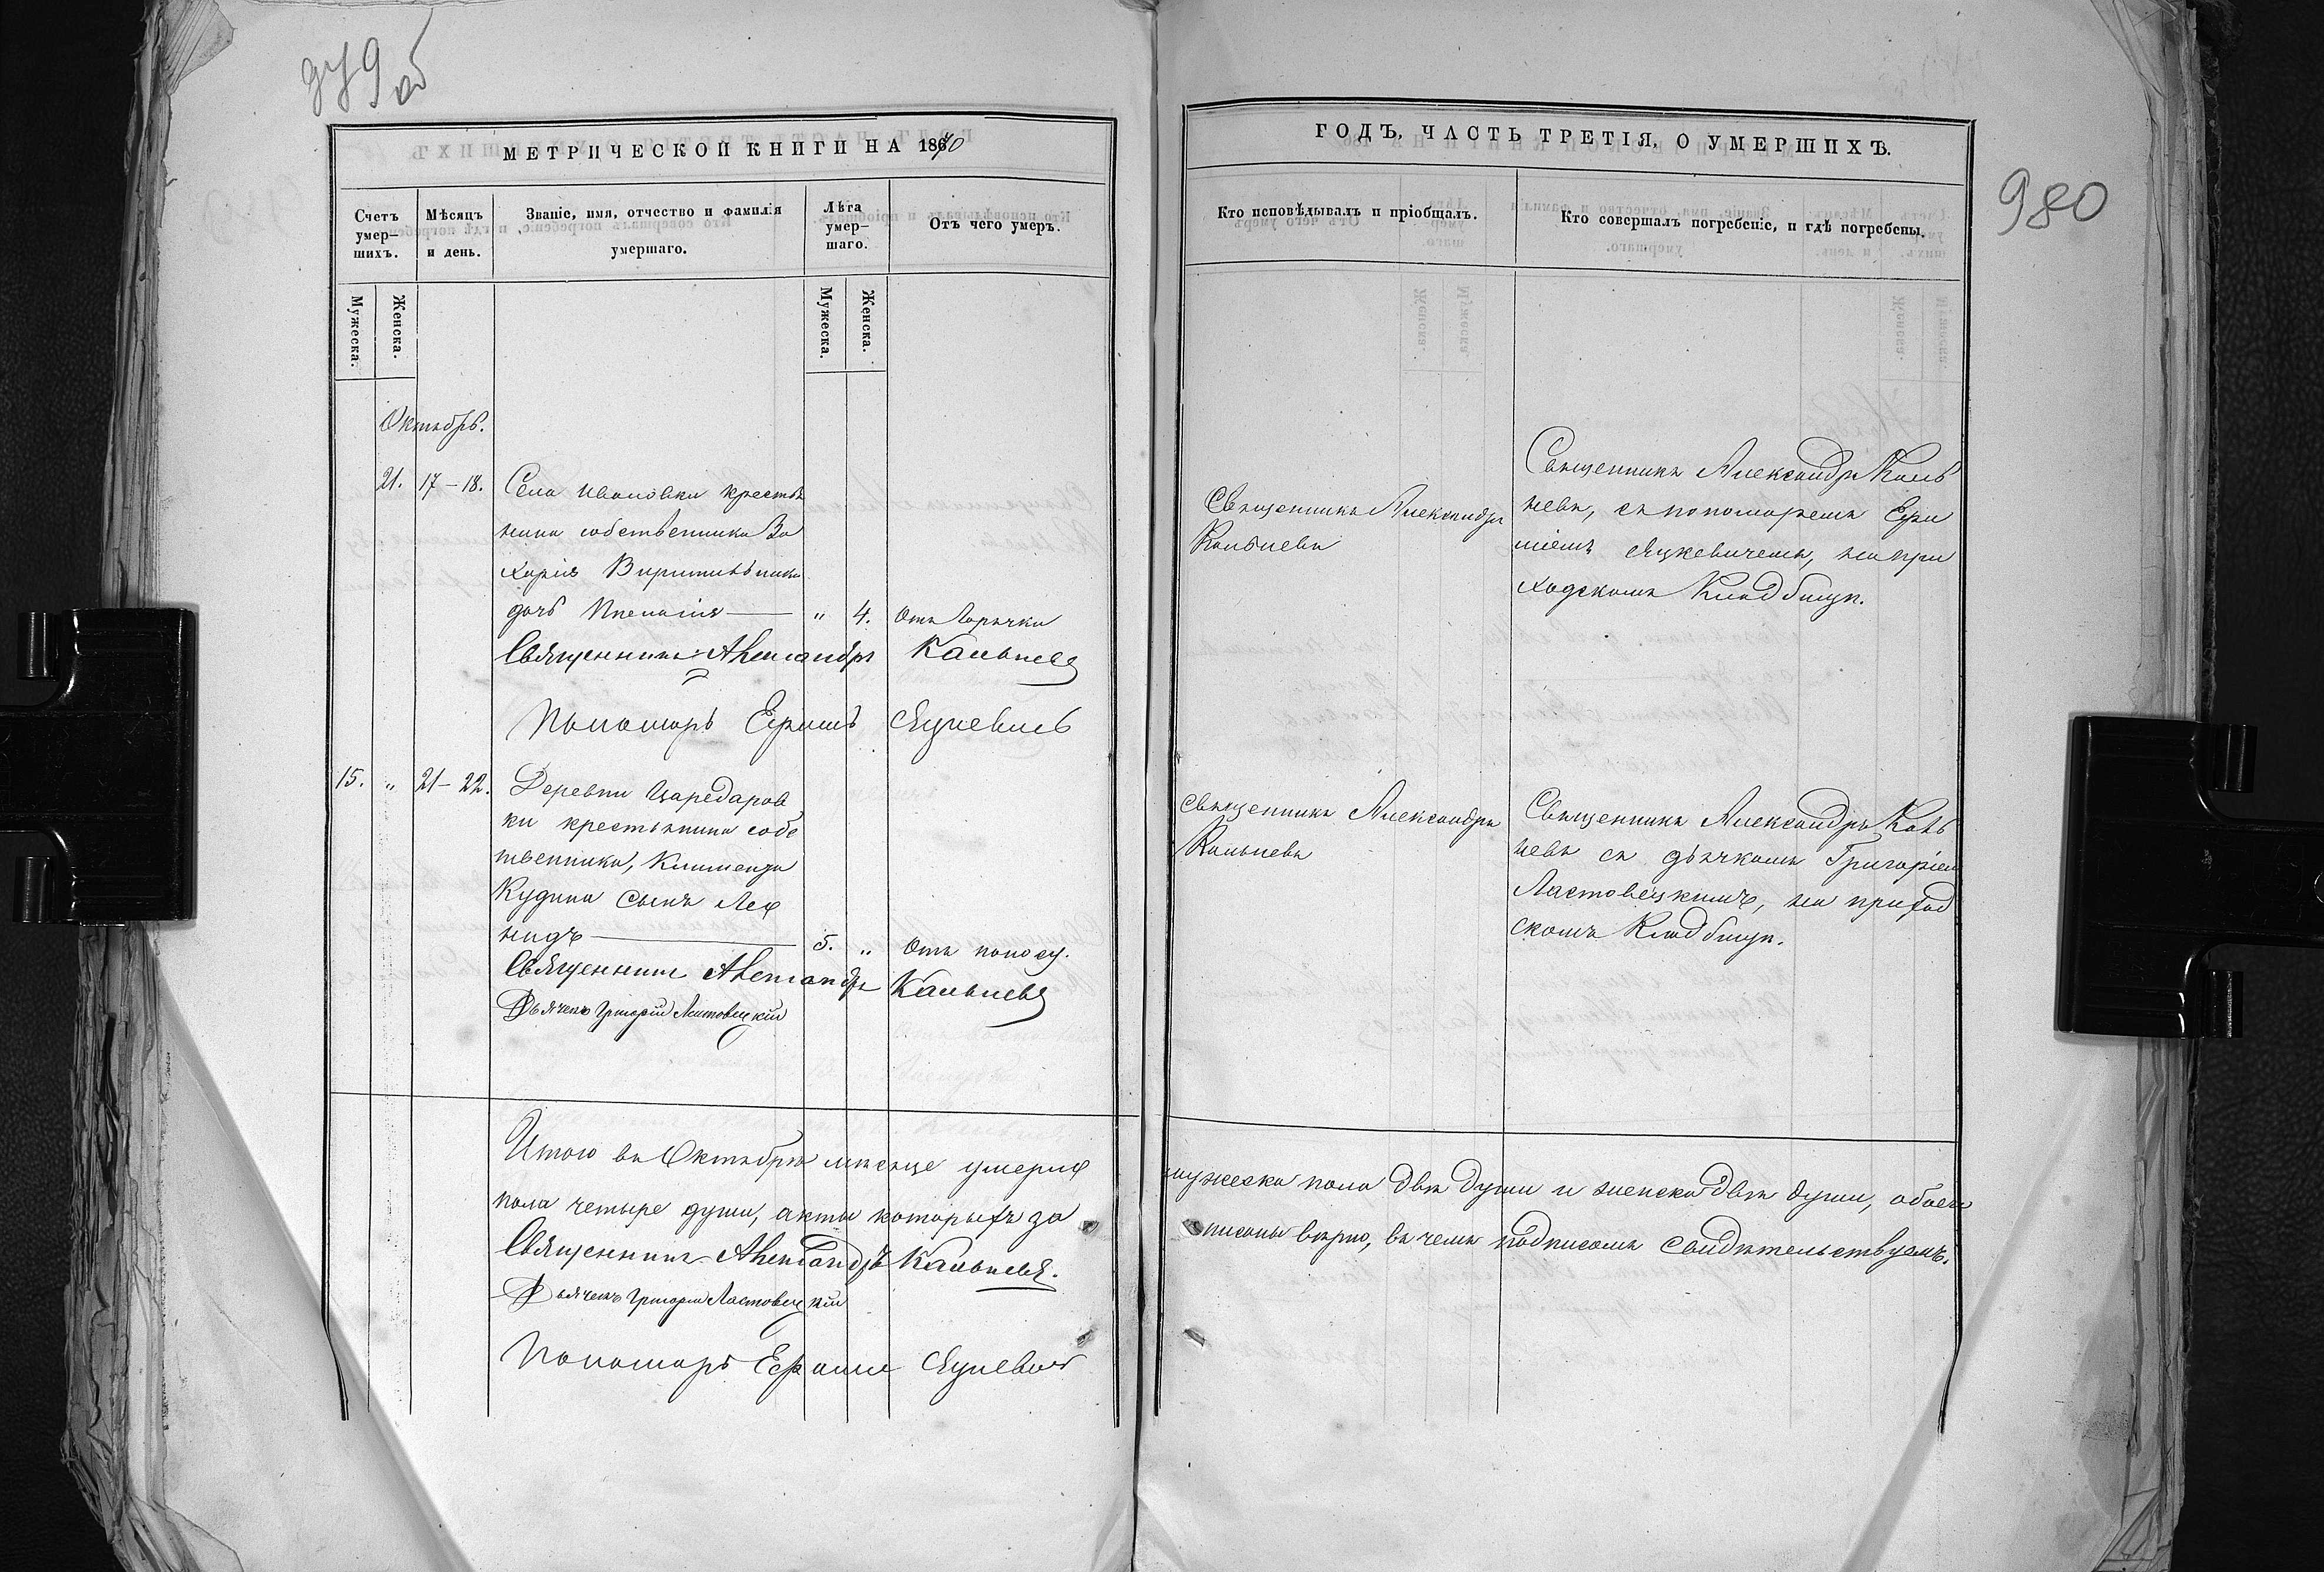 979 об
МЕТРИЧЕСКОЙ КНИГИ НА 1870
Счетъ умер-шихъ.
Мѣсяцъ и день.
Званіе, имя, отчество и фамилія умершаго.
Лѣта умер-шаго.
Отъ чего умеръ.
Мужеска.
Женска.
Мужеска.
Женска.
Октябрь.
21. 17–18. Села Ивановки крестья
нина собственника За
харія
дочь — " 4. Отъ Горячки
Священникъ Александръ Кальневъ
Пономарь Ефимъ Яцкевичь
15. " 21–22. Деревни Царедаров
ки крестьянина собс
твенника, Климента
Кудина сынъ Лео
нидъ — 5. " Отъ поносу.
Священникъ Александръ Кальневъ
Дьячекъ Григорій Ластовецкій
Итого въ Октябрѣ мѣсяце умерло
пола четыре души, акты которыхъ за
Священникъ Александръ Кальневъ.
Дьячекъ Григорій Ластовецкій
Пономарь Ефимъ Яцкевичь
980
ГОДЪ, ЧАСТЬ ТРЕТІЯ, О УМЕРШИХЪ.
Кто исповѣдывалъ и пріобщалъ.
Кто совершалъ погребеніе, и гдѣ погребены.
Священникъ Александръ
Кальневъ
Священникъ Александръ Каль
невъ, съ пономаремъ Ефи
міемъ Яцкевичемъ, на при
ходскомъ Кладбищѣ.
Священникъ Александръ
Кальневъ
Священникъ Александръ Каль
невъ съ дьячкомъ Григоріем
Ластовецкимъ, на приход
скомъ Кладбищѣ.
мужеска пола двѣ души и женска двѣ души, обоего
писаны вѣрно, въ чемъ подписомъ свидѣтельствуемъ.